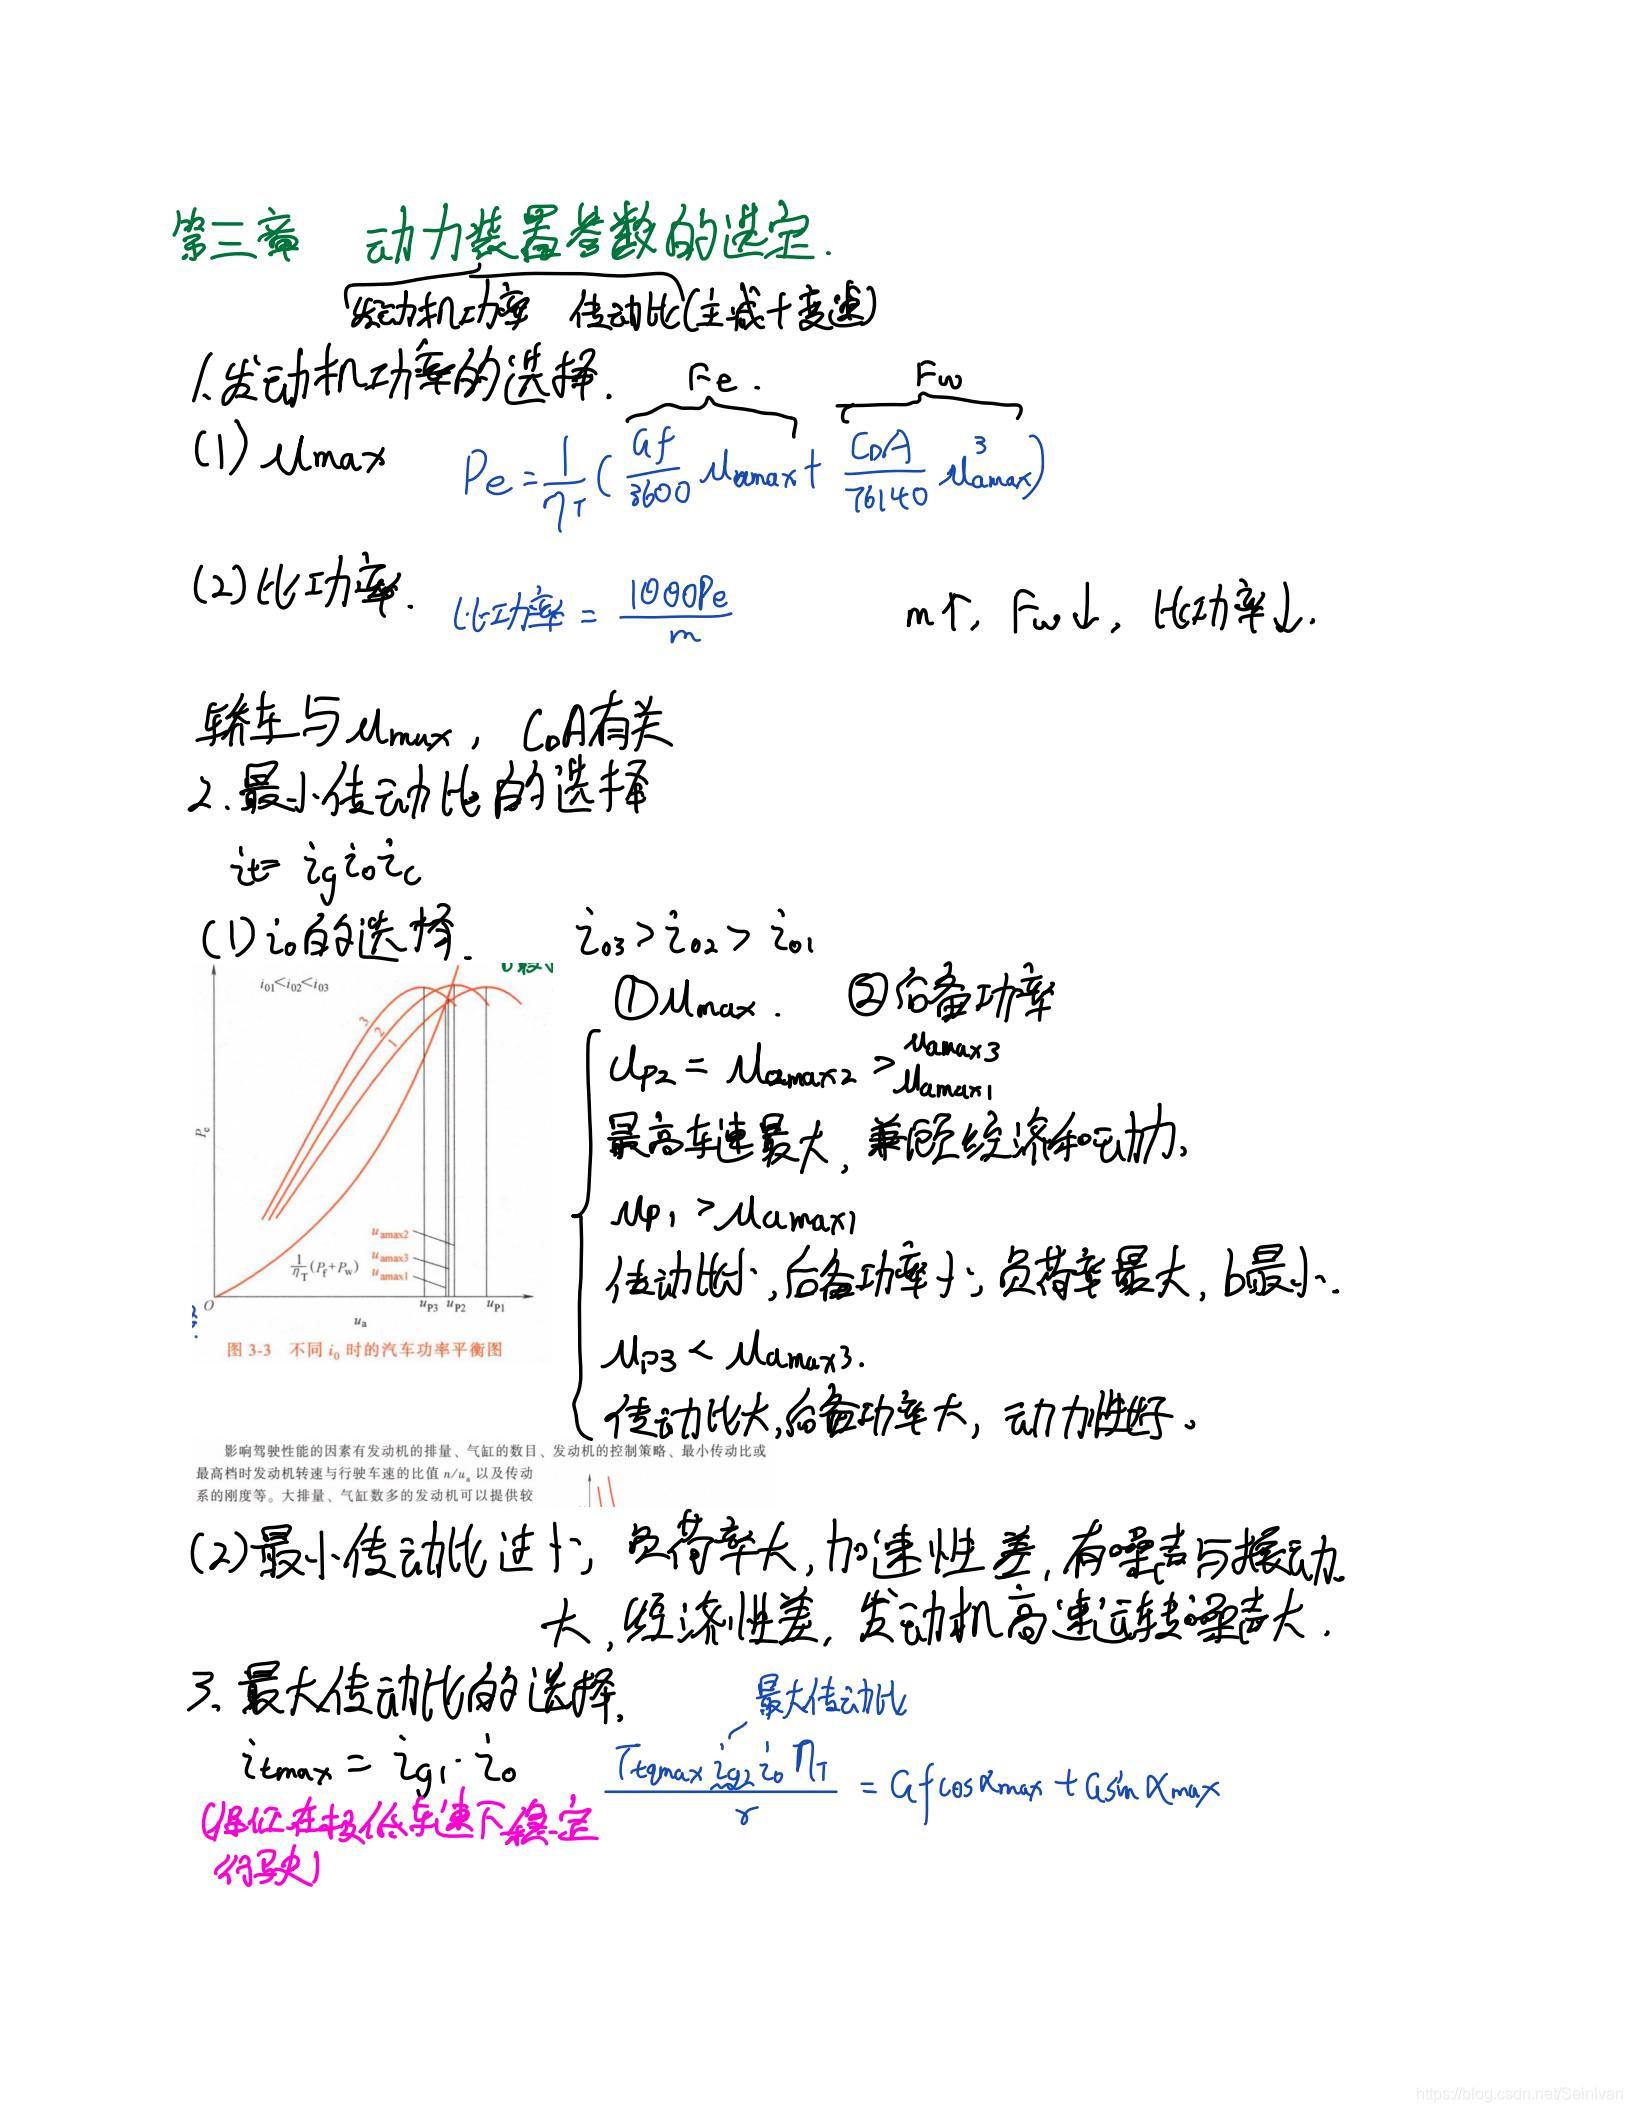 第三章 动力装置参数的选定.
发动机功率 传动比(主减+变速)
1.发动机功率的选择.
Fe. Fw
(1) umax Pe = 1/ηT ( Gf/3600 uamax + CDA/76140 u³amax )
(2) 比功率. 比功率 = 1000Pe/m m↑, Fw↓, 比功率↓.
轿车与umax, CDA有关
2.最小传动比的选择
it= ig i0 ic
(1) i0的选择. i03 > i02 > i01
i01<i02<i03
①umax. ②后备功率
3
2
1
Pe
uamax2
uamax3
uamax1
1/ηT (Pf+Pw)
O uP3 uP2 uP1
ua
图 3-3 不同 i0 时的汽车功率平衡图
uP2 = uamax2 > uamax3
uamax1
最高车速最大, 兼顾经济和动力.
uP1 > uamax1
传动比小, 后备功率小, 负荷率最大, b最小.
uP3 < uamax3.
传动比大,后备功率大, 动力性好。
影响驾驶性能的因素有发动机的排量、气缸的数目、发动机的控制策略、最小传动比或
最高档时发动机转速与行驶车速的比值 n/ua 以及传动
系的刚度等。大排量、气缸数多的发动机可以提供较
(2) 最小传动比过小, 负荷率大, 加速性差, 有噪声与振动.
大, 经济性差, 发动机高速运转噪声大.
3. 最大传动比的选择.
最大传动比
itmax = ig1·i0 Ttqmax ig1 i0 ηT / r = Gf cosαmax + Gsinαmax
(保证在极低车速下稳定
行驶)
https://blog.csdn.net/SeinIvan